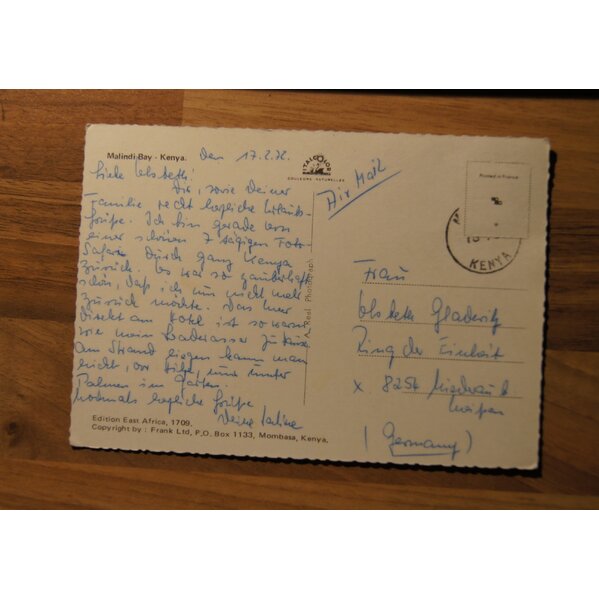 Malindi Bay - Kenya.
den 17.2.76
ITALCOLOR
COULEURS NATURELLES
Liebe Elsbeth!
Dir, sowie Deiner
Familie recht herzliche Urlaubs-
grüße. Ich bin gerade von
einer schönen 7 tägigen Foto-
Safari durch ganz Kenya
zurück. Es war so zauberhaft
schön, daß ich nur nicht mehr
zurück möchte. Das Meer
direkt am Hotel ist so warm
wie mein Badewasser zu Hause.
Am Strand liegen kann man
nicht, vor Hitze, nur unter
Palmen im Garten.
Nochmals herzliche Grüße
Deine
Edition East Africa, 1709.
Copyright by : Frank Ltd, P.O. Box 1133, Mombasa, Kenya.
A. Reel Photograph
Air Mail
Printed in France
KENYA
Frau
Elsbeth
Ring der Einheit
x 8254
(Germany)